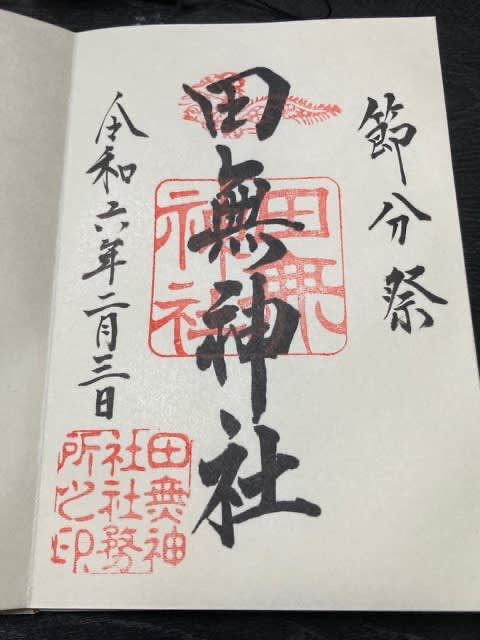 節分祭
田無神社
令和六年二月三日
田無神社
田無神
社社務
所之印